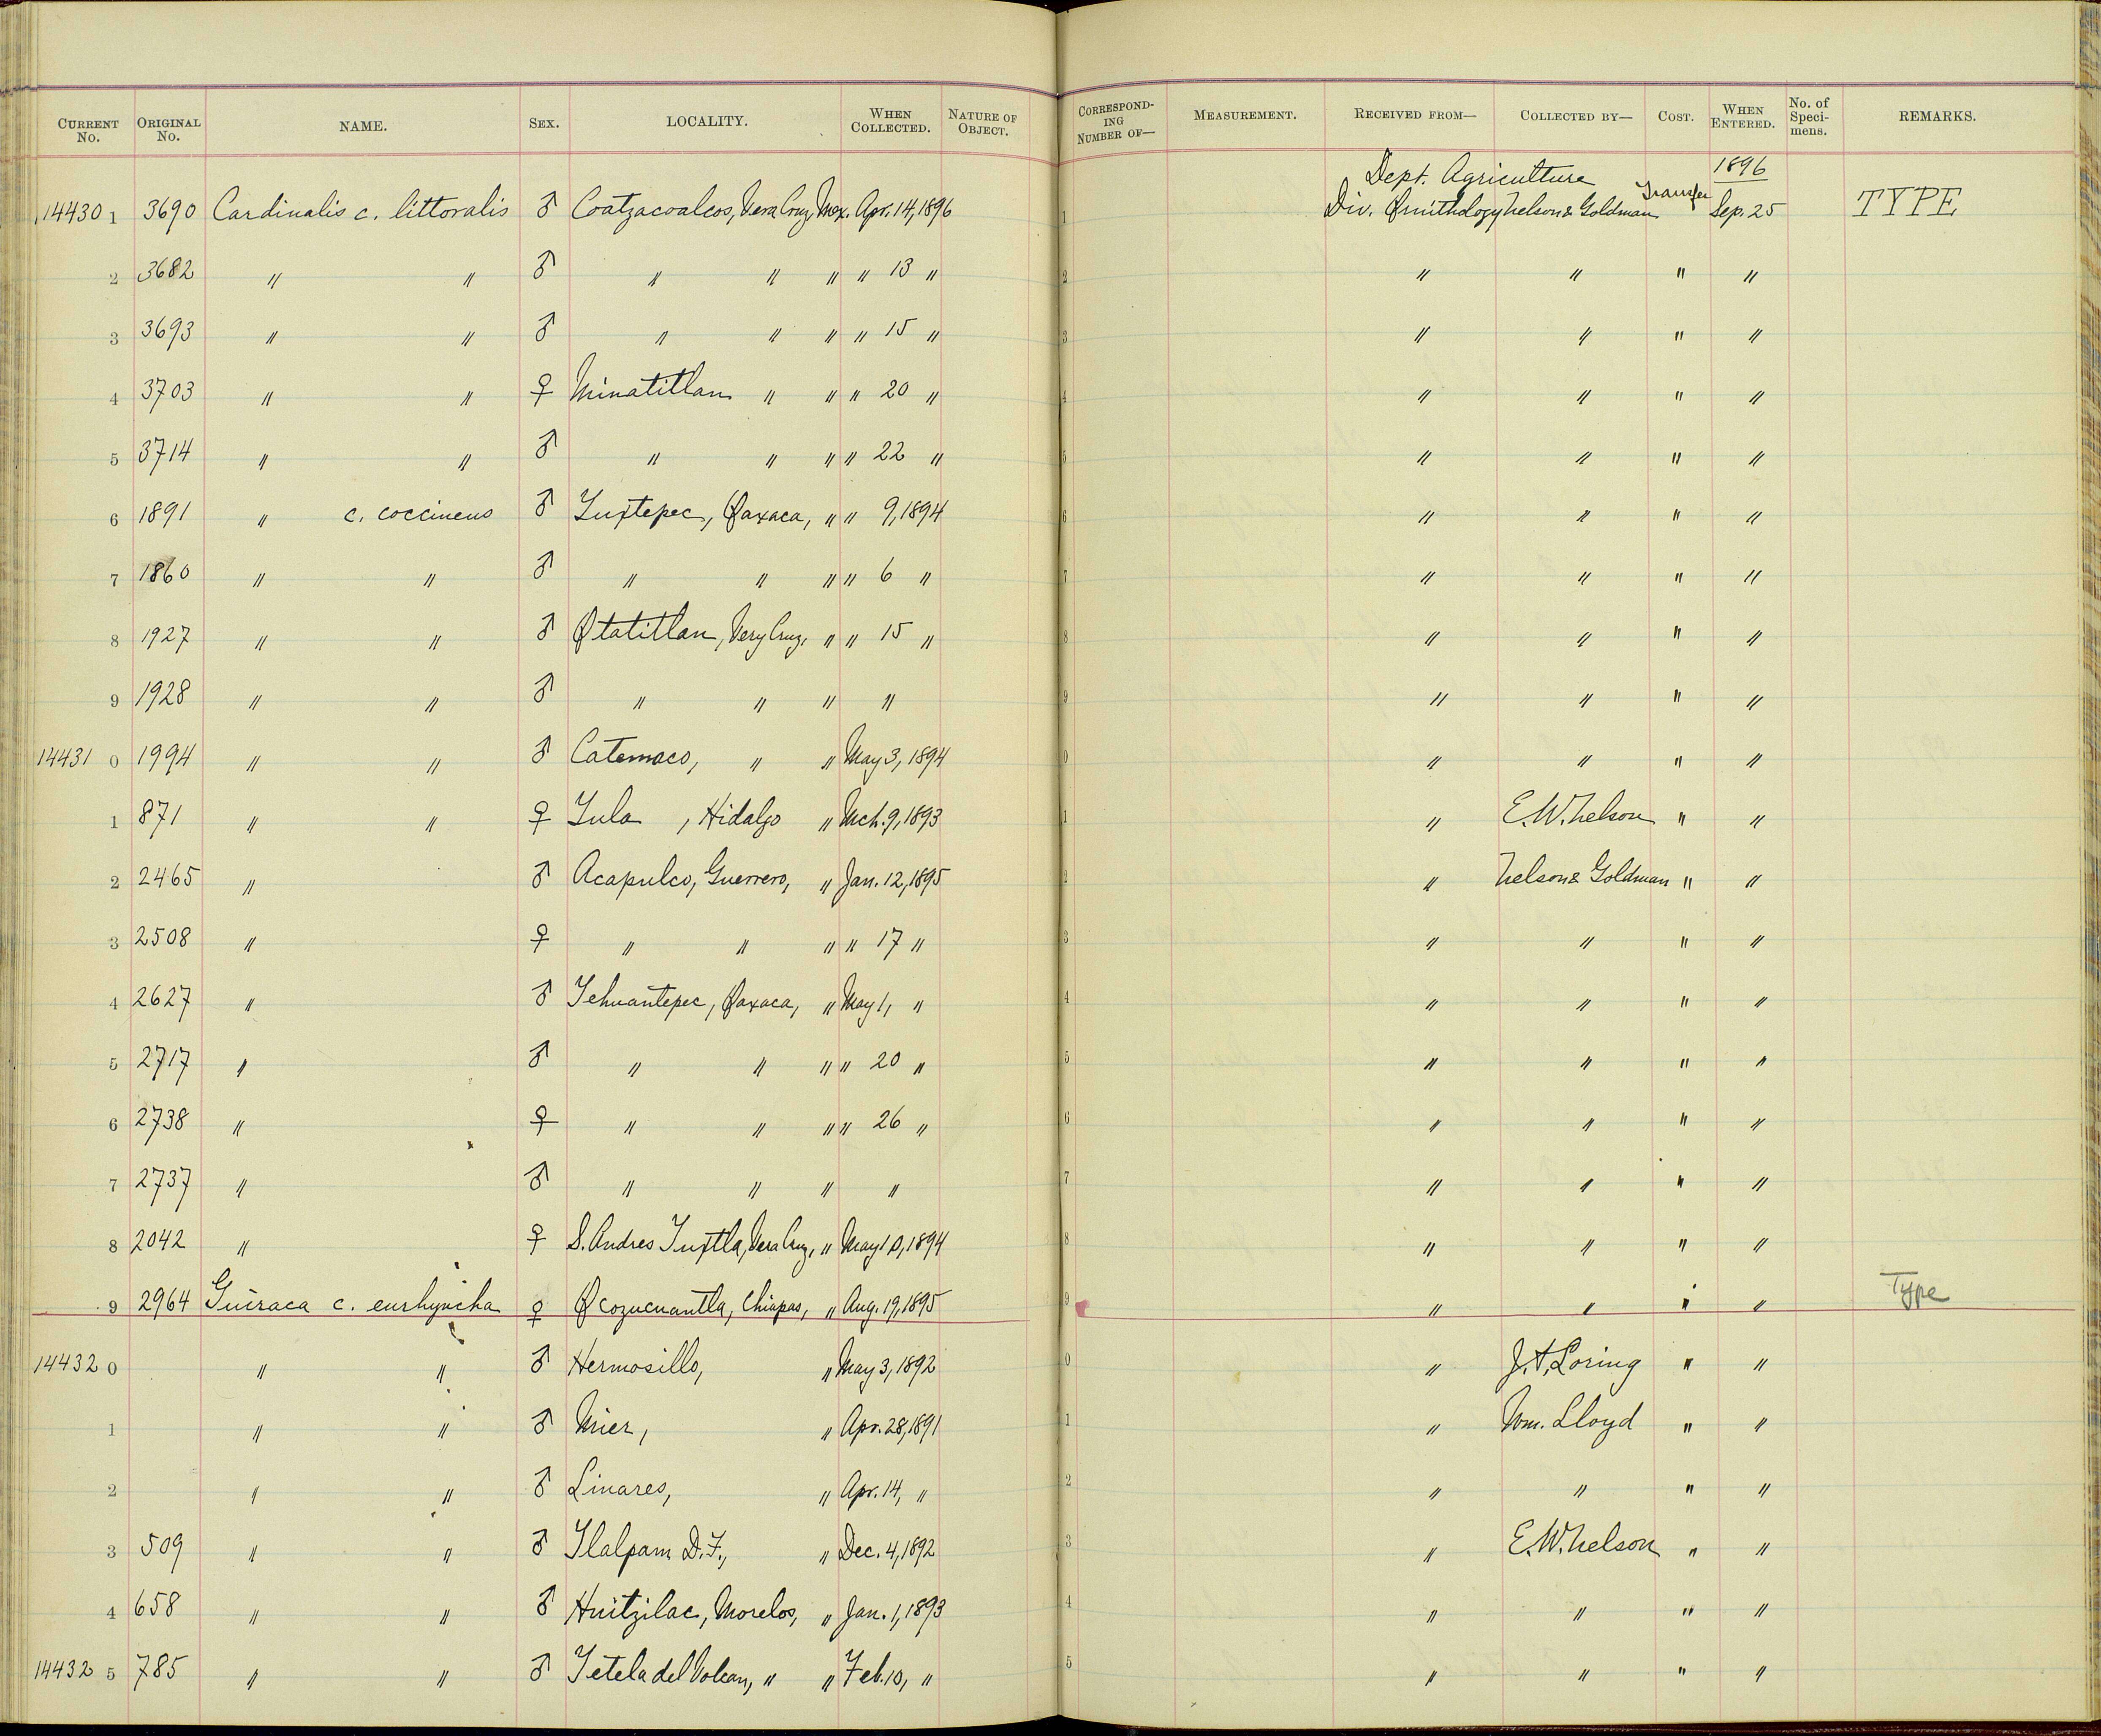 CURRENT No. ORIGINAL No. NAME. SEX. LOCALITY. WHEN COLLECTED. NATURE OF OBJECT. CORRESPONDING NUMBER OF— MEASUREMENT. RECEIVED FROM— COLLECTED BY— COST. WHEN ENTERED. No. of Specimens. REMARKS.
Dept. Agriculture 1896
14430 1 3690 Cardinalis c. littoralis ♂ Coatzacoalcos, Vera Cruz Mex. Apr. 14, 1896 1 Div. Ornithology Nelson & Goldman Transfer Sep. 25 TYPE
2 3682 " " ♂ " " " " 13 " 2 " " " "
3 3693 " " ♂ " " " " 15 " 3 " " " "
4 3703 " " ♀ Minatitlan " " " 20 " 4 " " " "
5 3714 " " ♂ " " " " 22 " 5 " " " "
6 1891 " c. coccineus ♂ Tuxtepec, Oaxaca, " " 9, 1894 6 " " " "
7 1860 " " ♂ " " " " 6 " 7 " " " "
8 1927 " " ♂ Otatitlan, Very Cruz, " " 15 " 8 " " " "
9 1928 " " ♂ " " " " 9 " " " "
14431 0 1994 " " ♂ Catemaco, " " May 3, 1894 0 " " " "
1 871 " " ♀ Tula , Hidalgo " Mch. 9, 1893 1 " E. W. Nelson " "
2 2465 " ♂ Acapulco, Guerrero, " Jan. 12, 1895 2 " Nelson & Goldman " "
3 2508 " ♀ " " " " 17 " 3 " " " "
4 2627 " ♂ Tehuantepec, Oaxaca, " May 1, " 4 " " " "
5 2717 " ♂ " " " " 20 " 5 " " " "
6 2738 " ♀ " " " " 26 " 6 " " " "
7 2737 " ♂ " " " " 7 " " " "
8 2042 " ♀ S. Andres Tuxtla, Vera Cruz, " May 10, 1894 8 " " " "
9 2964 Guiraca c. eurhyncha ♀ Ocozucuantla, Chiapas, " Aug. 19, 1895 9 " " " " Type
14432 0 " " ♂ Hermosillo, " May 3, 1892 0 " J. A. Loring " "
1 " " ♂ Mier, " Apr. 28, 1891 1 " Wm. Lloyd " "
2 " " ♂ Linares, " Apr. 14, " 2 " " " "
3 509 " " ♂ Tlalpam D. F., " Dec. 4, 1892 3 " E. W. Nelson " "
4 658 " " ♂ Huitzilac, Morelos, " Jan. 1, 1893 4 " " " "
14432 5 785 " " ♂ Tetela del Volcan, " " Feb. 10, " 5 " " " "